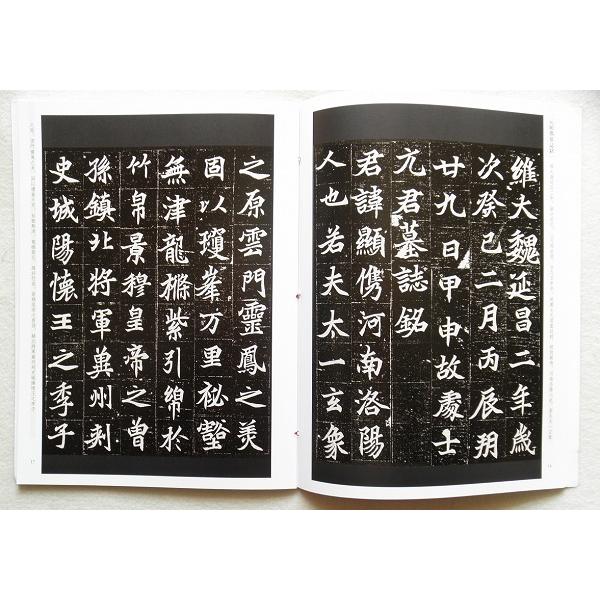 維大魏延昌二年歲
次癸巳二月丙辰朔
廿九日甲申故處士
元君墓誌銘
君諱顯儁河南洛陽
人也若夫太一玄象
之原雲門靈鳳之美
固以瓊峯万里祕豁
無津龍㯿紫引綿於
竹帛景穆皇帝之曾
孫鎮北將軍冀州刺
史城陽懷王之季子
17